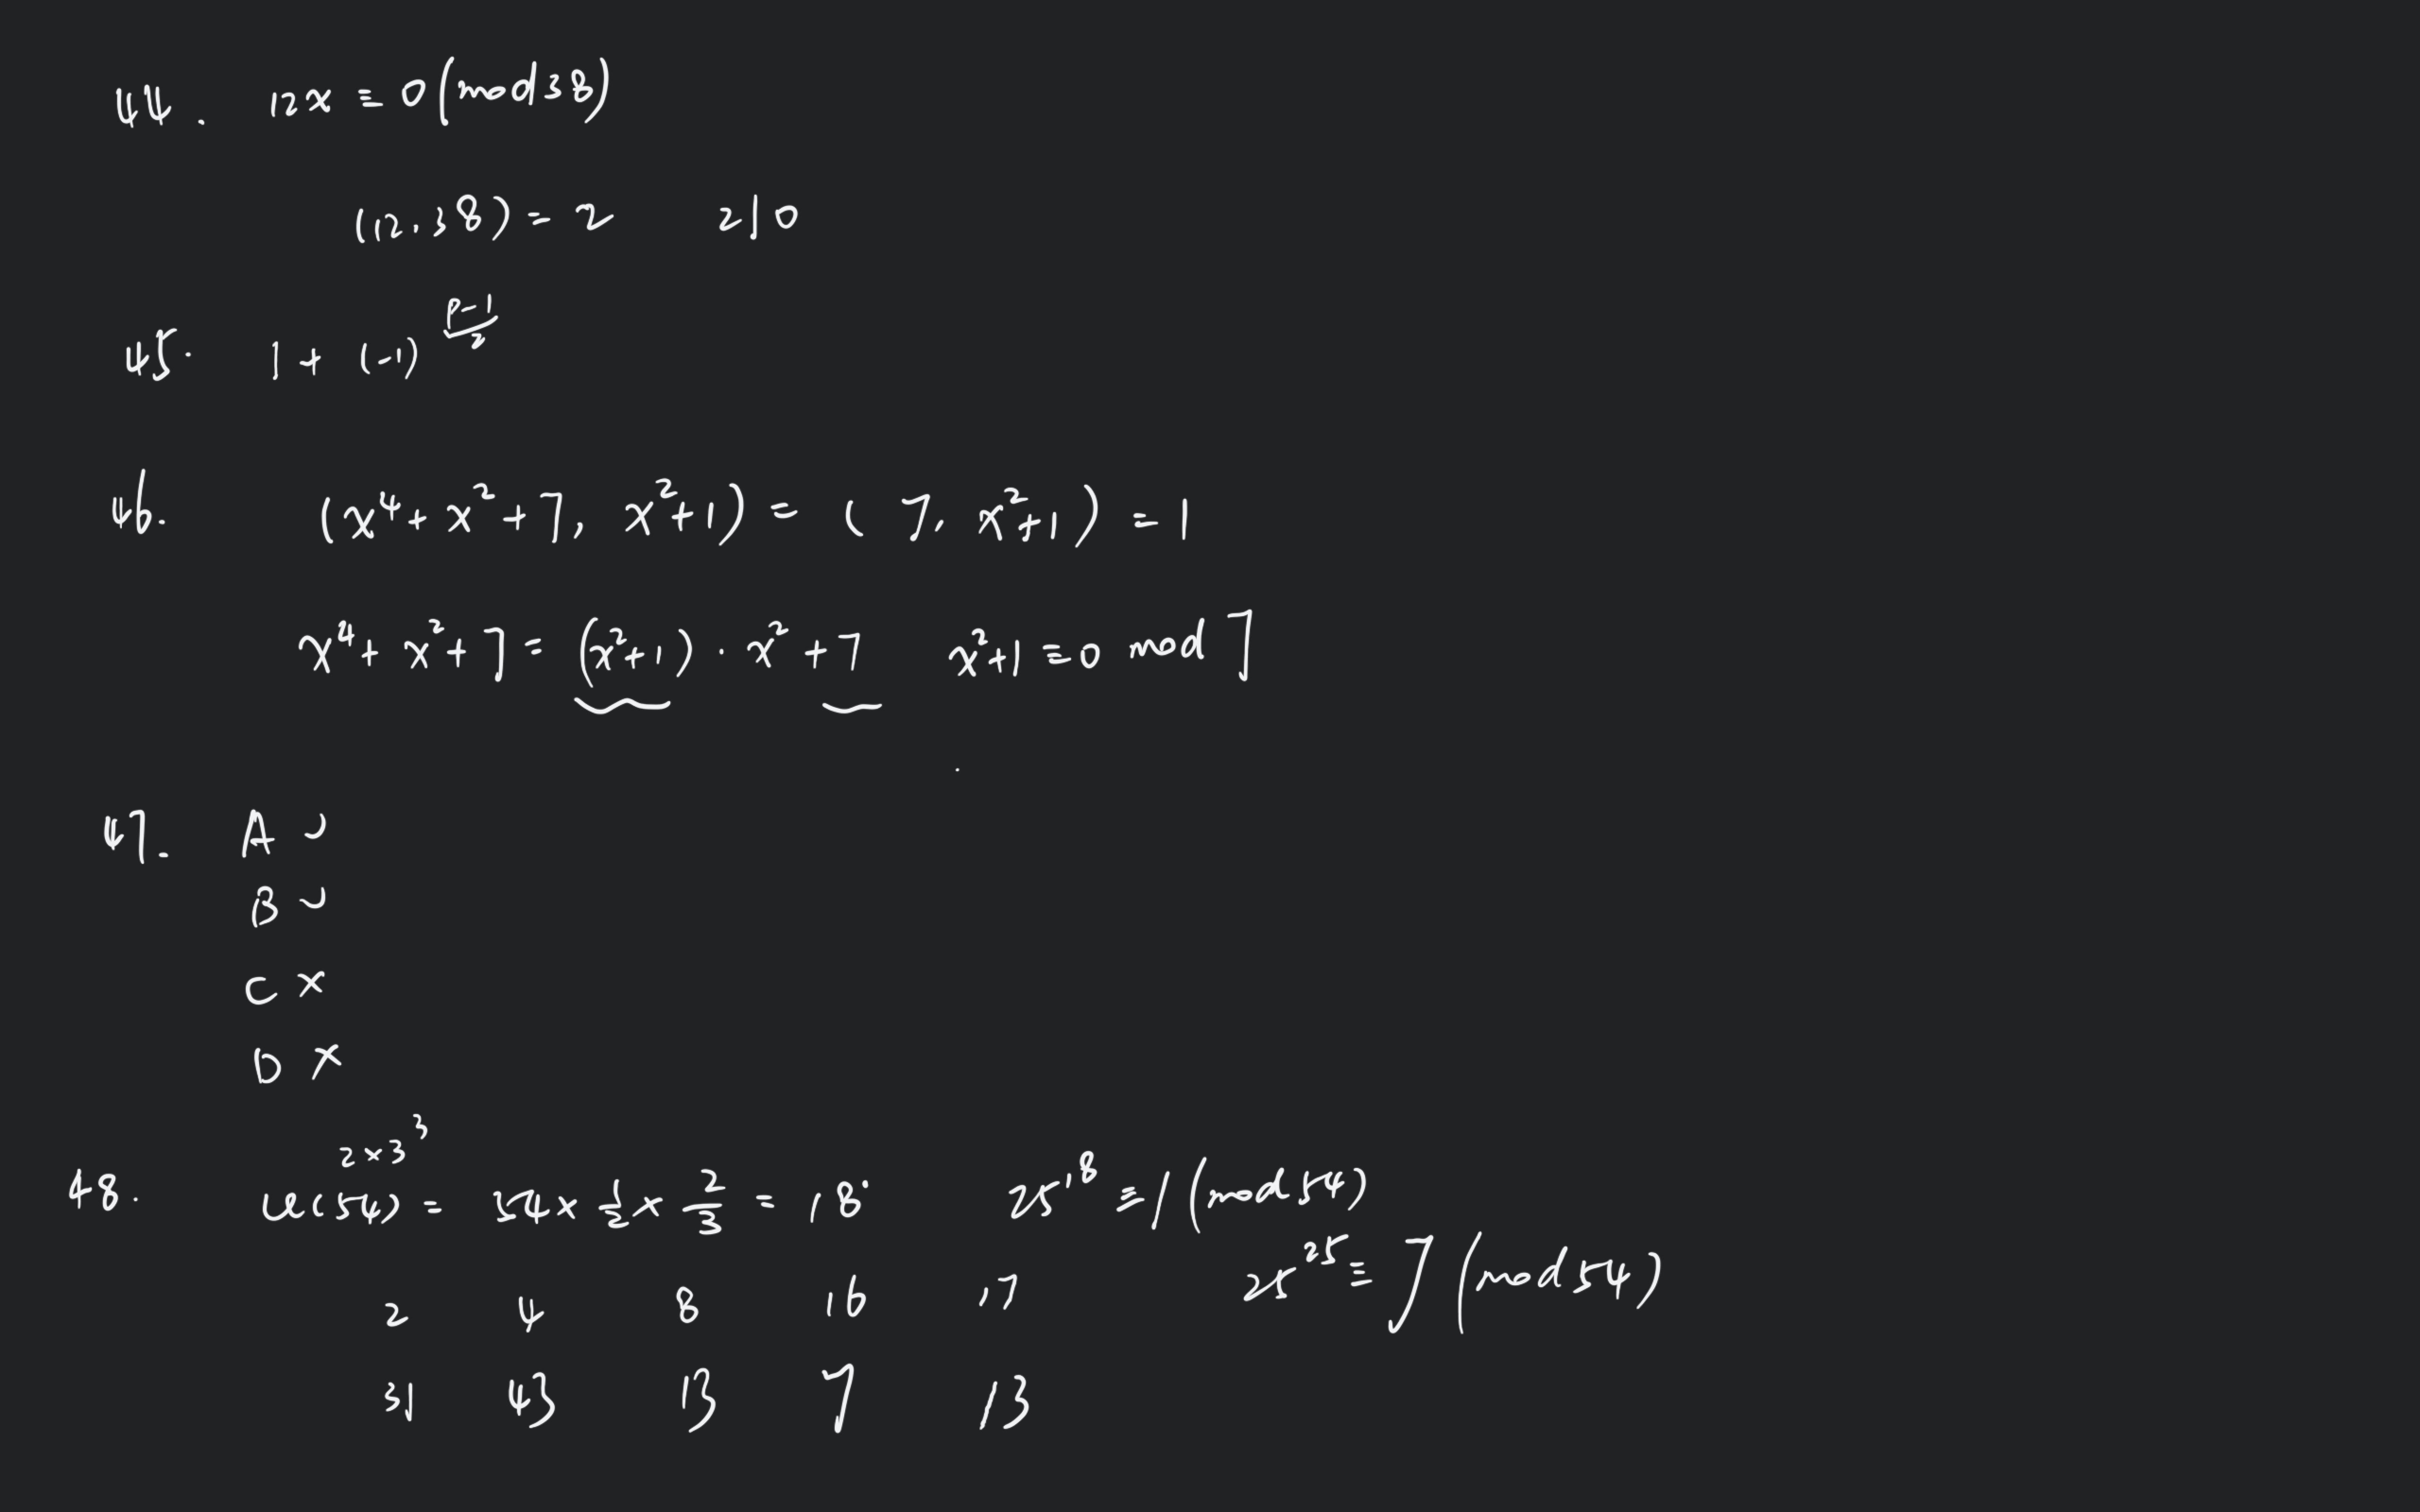 44. 12x ≡ 0 (mod 38)
(12, 38) = 2 2|0
45. 1 + (-1)^{\frac{p-1}{2}}
46. (x⁴ + x² + 7, x² + 1) = (7, x² + 1) = 1
x⁴ + x² + 7 = (x² + 1) · x² + 7 x² + 1 ≡ 0 mod 7
47. A ✓
B ✓
C ×
D ×
2×3³
48. φ(54) = 54 × \frac{1}{2} × \frac{2}{3} = 18 25¹⁸ ≡ 1 (mod 54)
25²⁵ ≡ 7 (mod 54)
2 4 8 16 17
31 43 13 7 13